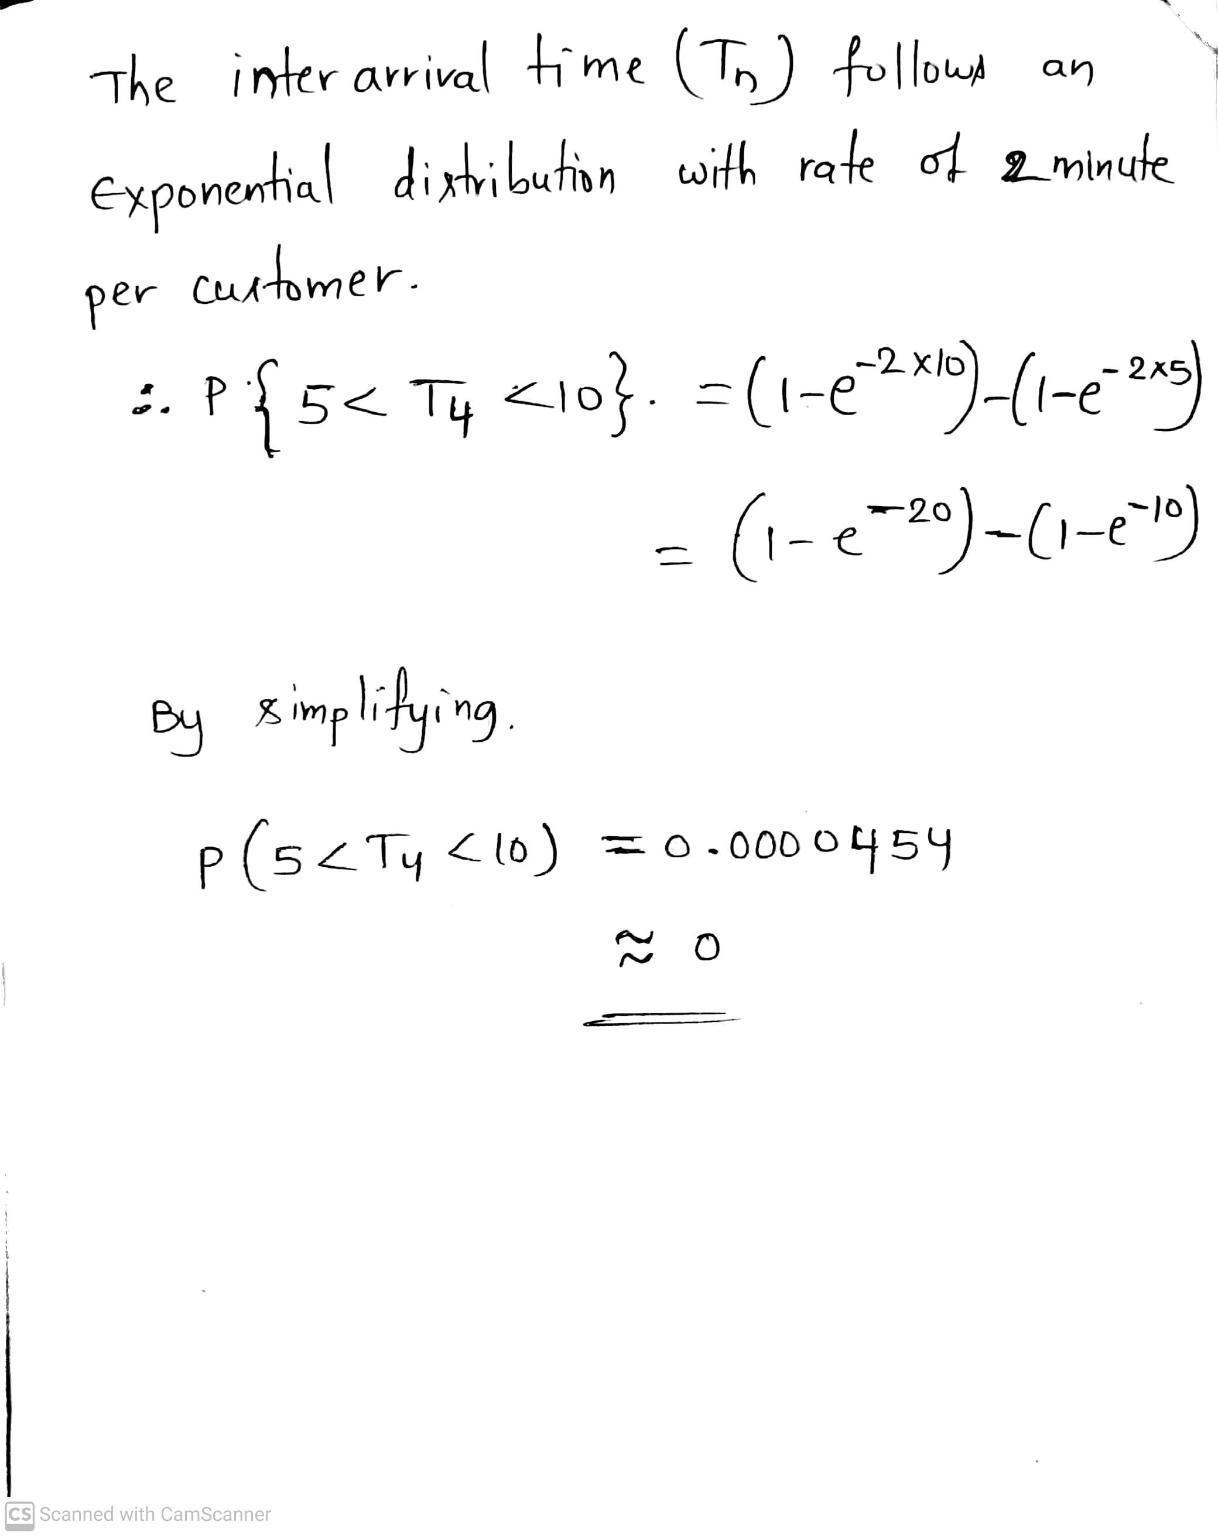 The inter arrival time (Tn) follows an
Exponential distribution with rate of 2 minute
per customer.
∴ P{5< T4 <10}. = (1-e^-2×10)-(1-e^-2×5)
= (1-e^-20)-(1-e^-10)
By simplifying.
P(5<T4<10) = 0.0000454
≈ 0
CS Scanned with CamScanner